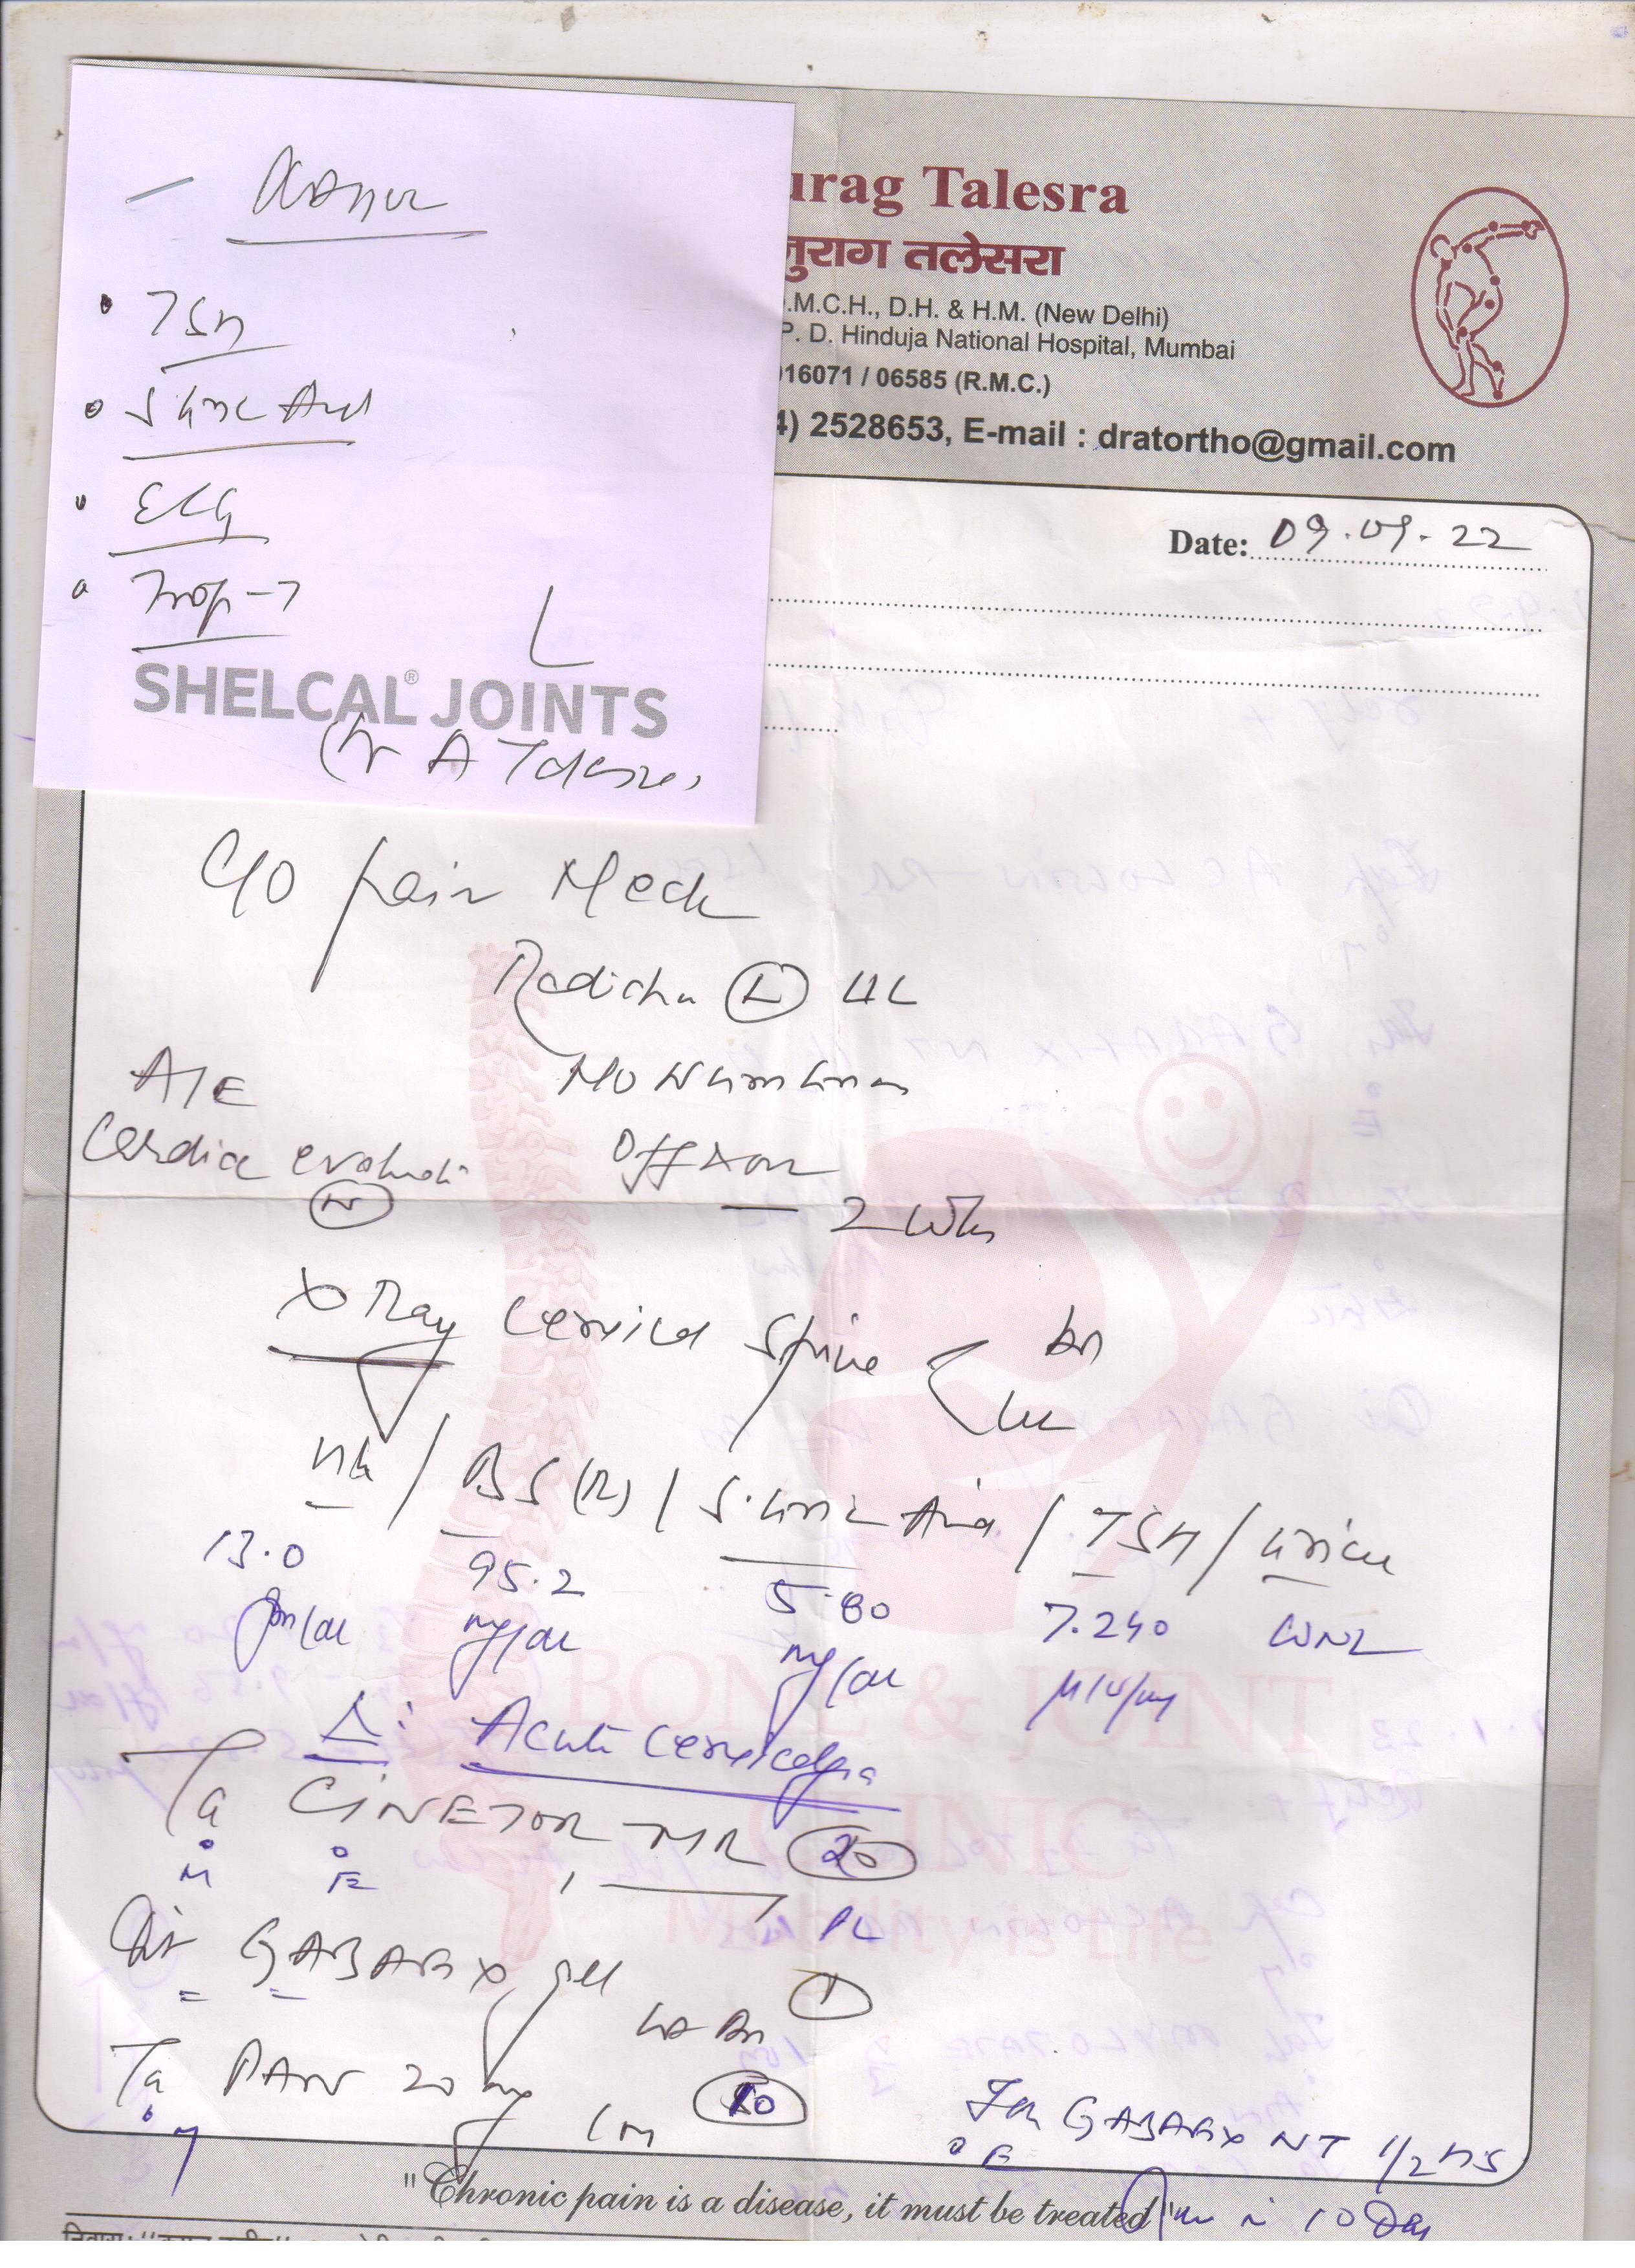 • TSH
• S Uric Acid
• ECG
• Trop-T
SHELCAL® JOINTS
(Dr A Talesra)
urag Talesra
नुराग तलेसरा
.M.C.H., D.H. & H.M. (New Delhi)
P. D. Hinduja National Hospital, Mumbai
016071 / 06585 (R.M.C.)
4) 2528653, E-mail : dratortho@gmail.com
Date: 09.09.22
C/O pain Neck
Radiation (L) UL
A/E No Numbness
Cardiac evaluation Off & on
(N) — 2 Wks
X Ray Cervical Spine
Hb / BS (R) / S. Uric Acid / TSH / Urine
13.0 95.2 5.80 7.240 WNL
gm/dl mg/dl mg/dl µIU/ml
Δ: Acute Cervicalgia
Ta CINETOR MR 20
M E
GABAFIX gel 1
LA
Ta PAN 20 mg 10
1 m
GABAFIX NT 1/2 HS
E
BONE & JOINT
CLINIC
Mobility is Life
"Chronic pain is a disease, it must be treated"
10 Day